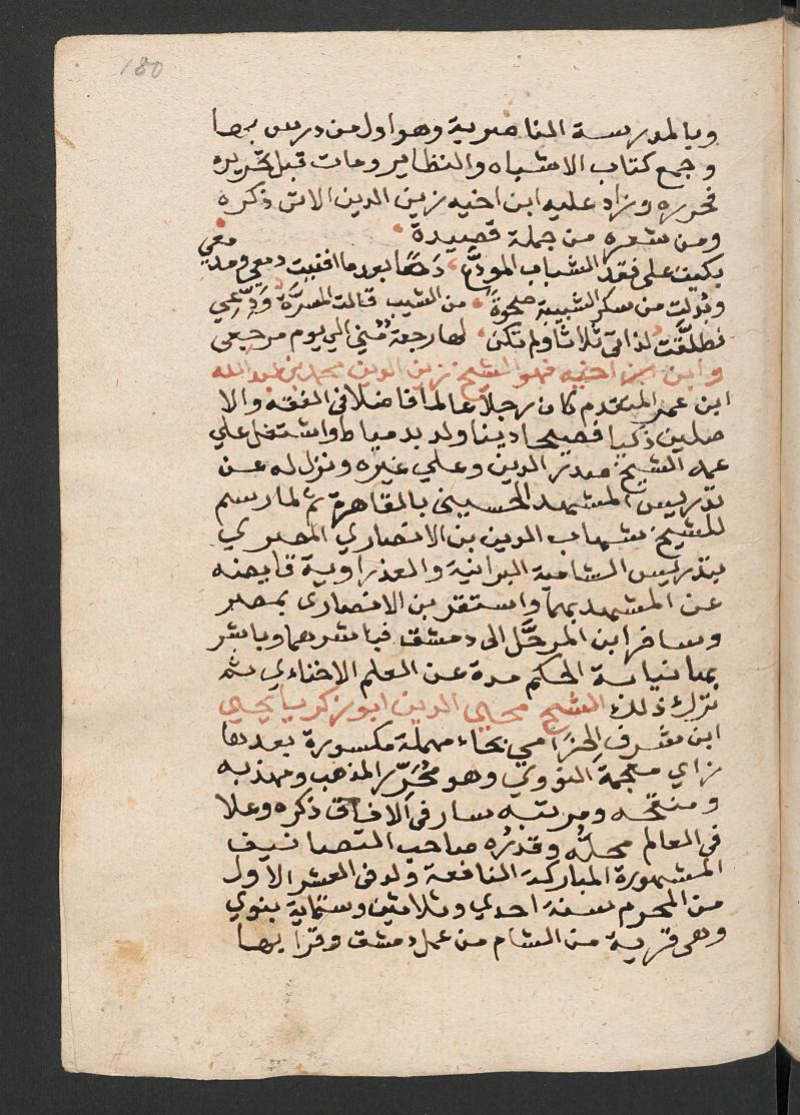 180
وبالمدرسة الناصرية وهو اول من درس بها
وجمع كتاب الاشباه والنظاير ومات قبل تحريره
فحرره وزاد عليه ابن اخيه زين الدين الاتى ذكره
ومن شعره من جملة قصيدة
بكيت على فقد الشباب المودع دمًا بعدما افنيت دمعي ومدمعي
وبُدلت من سكر الشبيبة صحوةً من الشيب قالت المسرّة ودّعي
فطلقتُ لذاتى ثلاثا ولم تكن لها رجعة مني الي يوم مرجعى
وابن اخيه فهو الشيخ زين الدين محمد بن عبد الله
ابن عمر المتقدم كان رجلا عالما فاضلا فى الفقه والا
صلين ذكيا فصيحا دينا ولد بدمياط واشتغل علي
عمه الشيخ صدر الدين وعلي غيره ونزل له عن
تدريس المشهد الحسينى بالقاهرة ثم لما رسم
للشيخ شهاب الدين بن الانصاري المصري
بتدريس الشامية البرانية والعذراوية قايضه
عن المشهد بهما واستقر بن الانصارى بمصر
وسافر ابن المرحّل الى دمشق فباشرهما وباشر
بها نيابة الحكم مدة عن العلم الاخناءي ثم
ترك ذلك الشيخ محيي الدين ابو زكريا يحيي
ابن شرف الحزامي بحاء مهملة مكسورة بعدها
زاي معجمة النووي وهو مُحَرّر المذهب ومهذبه
ومنقحه ومرتبه سار فى الافاق ذكره وعلا
فى العالم محلّه وقدرُه صاحب التصانيف
المشهورة المباركة النافعة ولد فى العشر الاول
من المحرم سنة احدي وثلاثين وستماية بنوي
وهى قرية من الشام من عمل دمشق وقرا بها